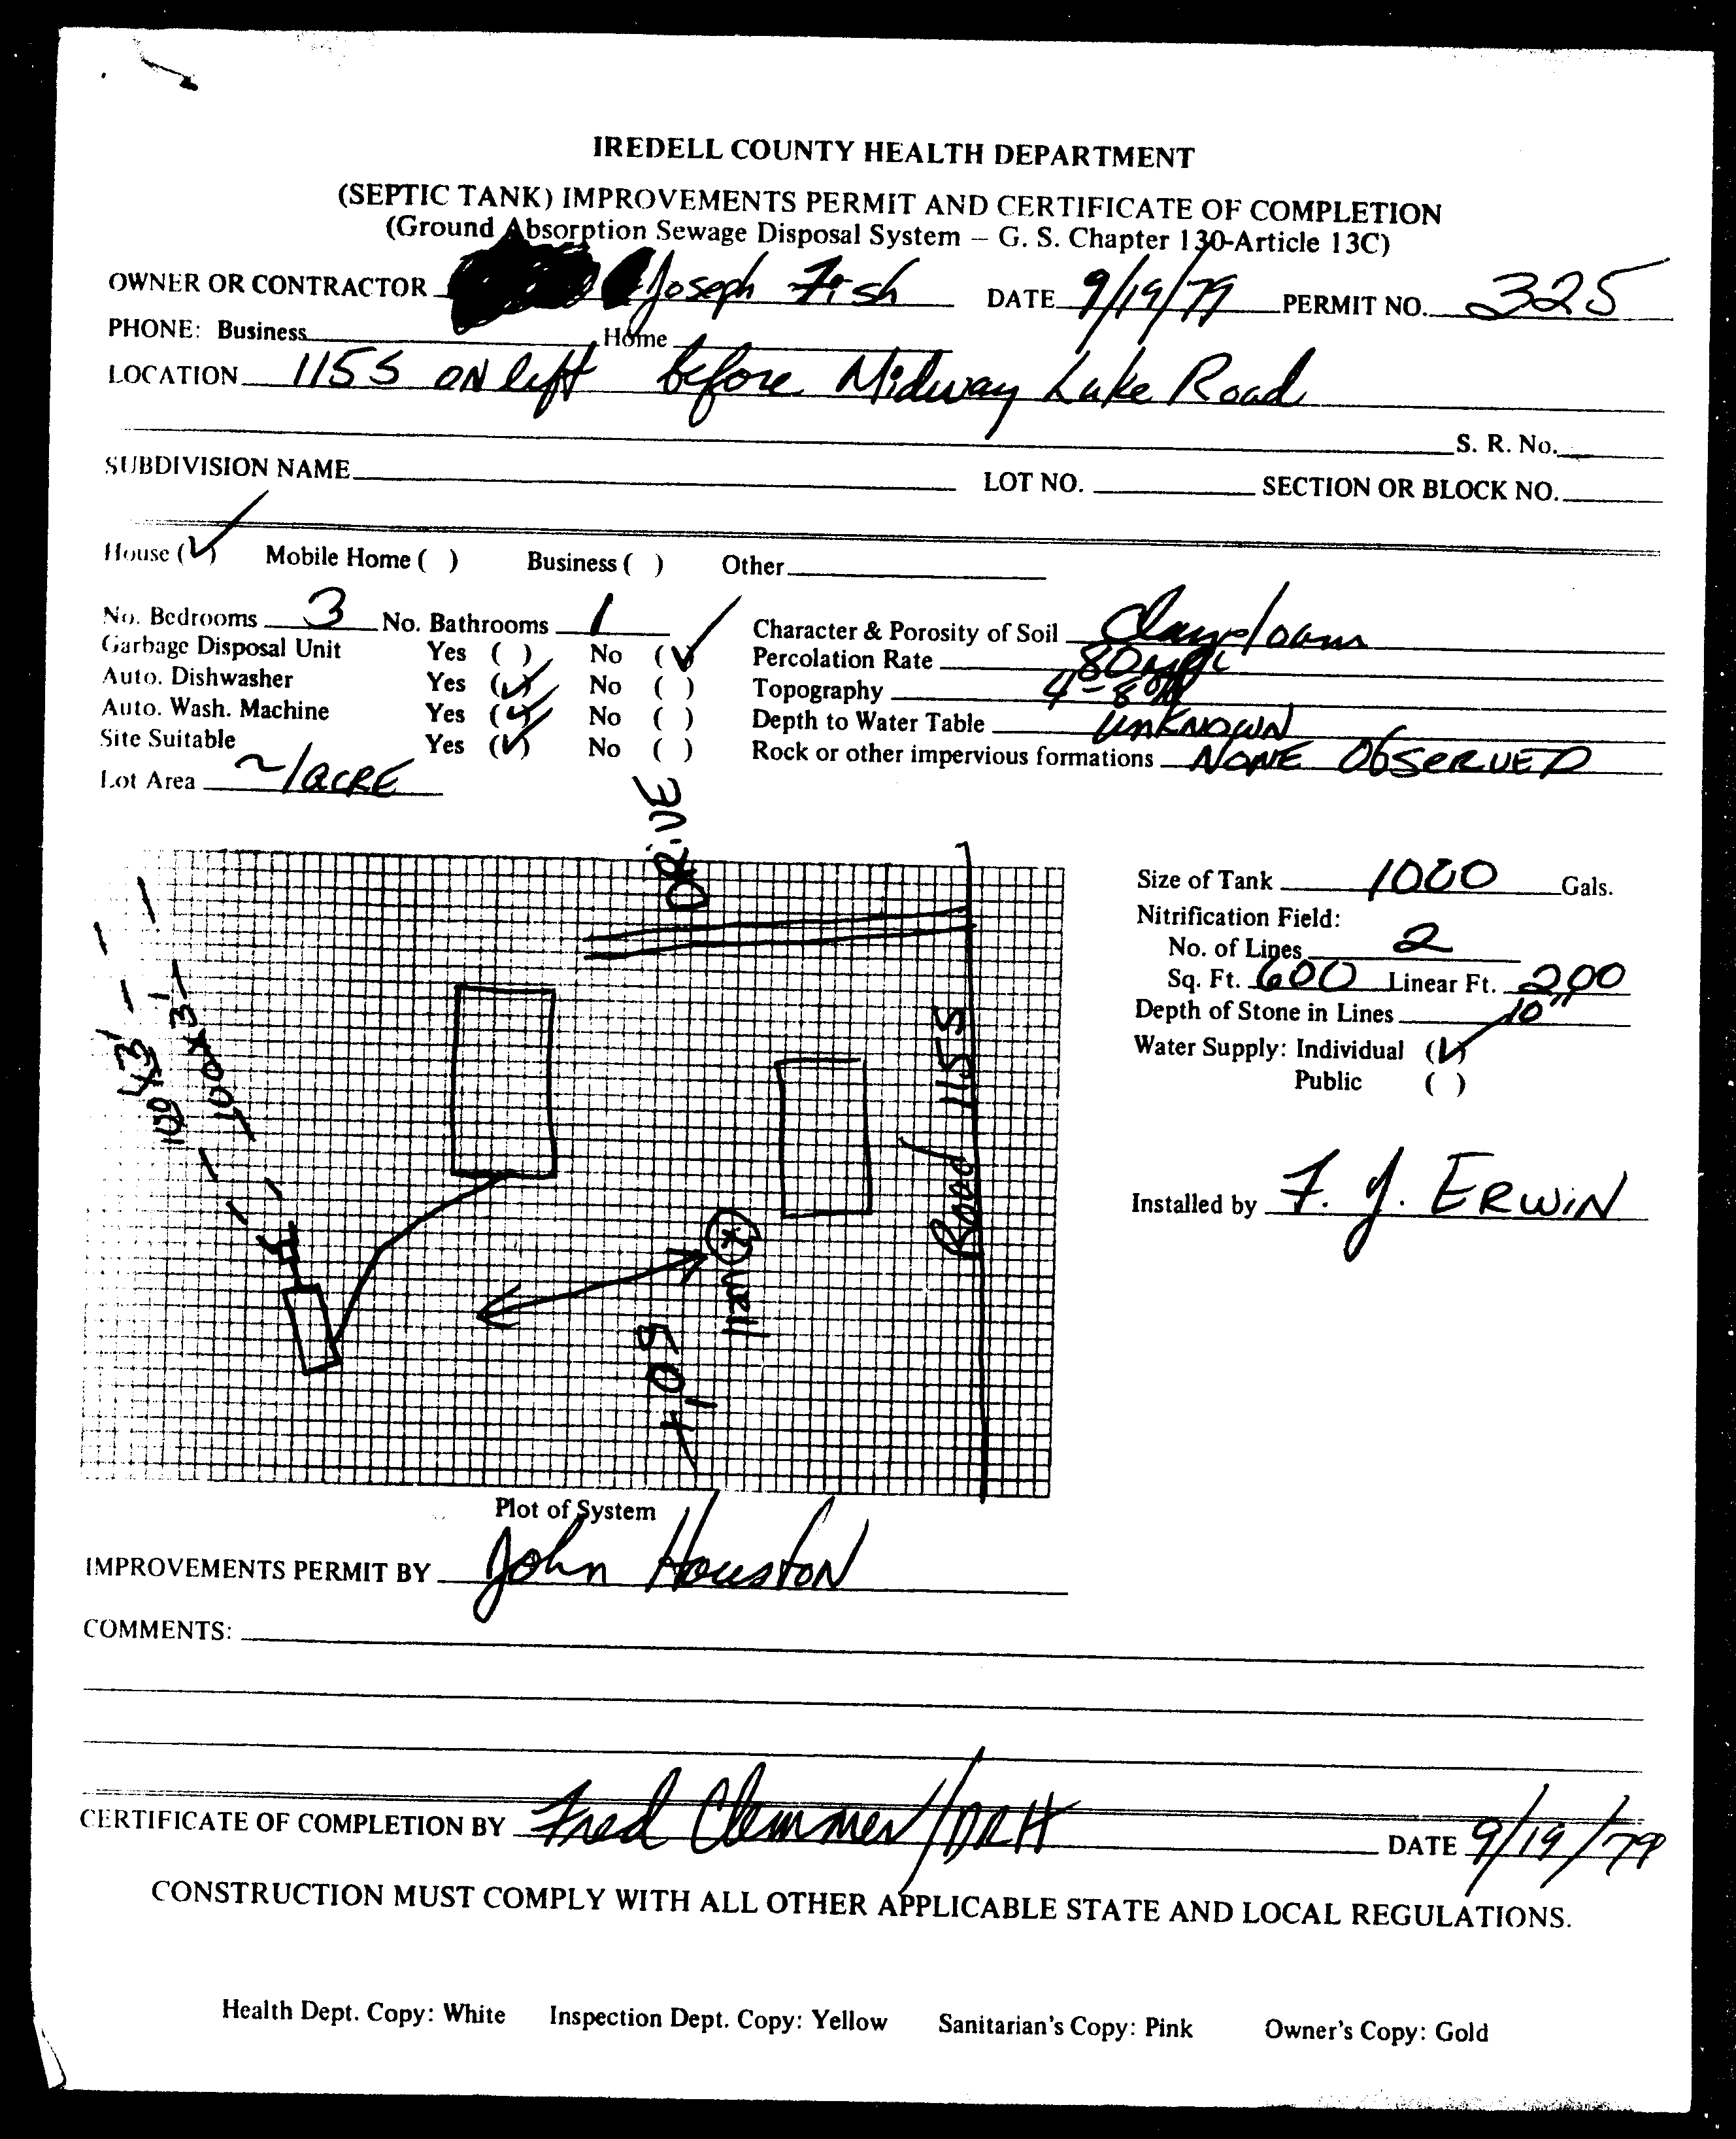 IREDELL COUNTY HEALTH DEPARTMENT
(SEPTIC TANK) IMPROVEMENTS PERMIT AND CERTIFICATE OF COMPLETION
(Ground Absorption Sewage Disposal System – G. S. Chapter 130-Article 13C)
OWNER OR CONTRACTOR Joseph Fish DATE 9/19/79 PERMIT NO. 325
PHONE: Business Home
LOCATION 1155 ON left before Midway Lake Road
S. R. No.
SUBDIVISION NAME LOT NO. SECTION OR BLOCK NO.
House (✓) Mobile Home ( ) Business ( ) Other
No. Bedrooms 3 No. Bathrooms 1 Character & Porosity of Soil Clay-loam
Garbage Disposal Unit Yes ( ) No (✓) Percolation Rate 80
Auto. Dishwasher Yes (✓) No ( ) Topography 4-8%
Auto. Wash. Machine Yes (✓) No ( ) Depth to Water Table UNKNOWN
Site Suitable Yes (✓) No ( ) Rock or other impervious formations NONE OBSERVED
Lot Area ~1 acre
DRIVE
100x3'
100x3'
Road 1155
well
50'+
Size of Tank 1000 Gals.
Nitrification Field:
No. of Lines 2
Sq. Ft. 600 Linear Ft. 200
Depth of Stone in Lines 10"
Water Supply: Individual (✓)
Public ( )
Installed by F. J. ERWIN
Plot of System
IMPROVEMENTS PERMIT BY John Houston
COMMENTS:
CERTIFICATE OF COMPLETION BY Fred Clemmer/DRH DATE 9/19/79
CONSTRUCTION MUST COMPLY WITH ALL OTHER APPLICABLE STATE AND LOCAL REGULATIONS.
Health Dept. Copy: White Inspection Dept. Copy: Yellow Sanitarian's Copy: Pink Owner's Copy: Gold